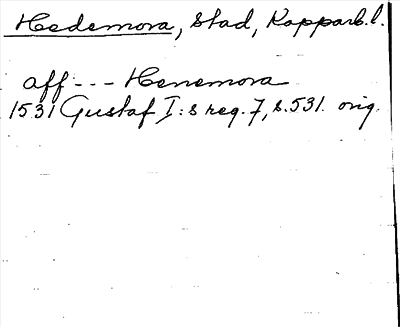 Hedemora, stad, Kopparb.l.
aff --- Henemora
1531 Gustaf I:s reg. 7, s.531. orig.